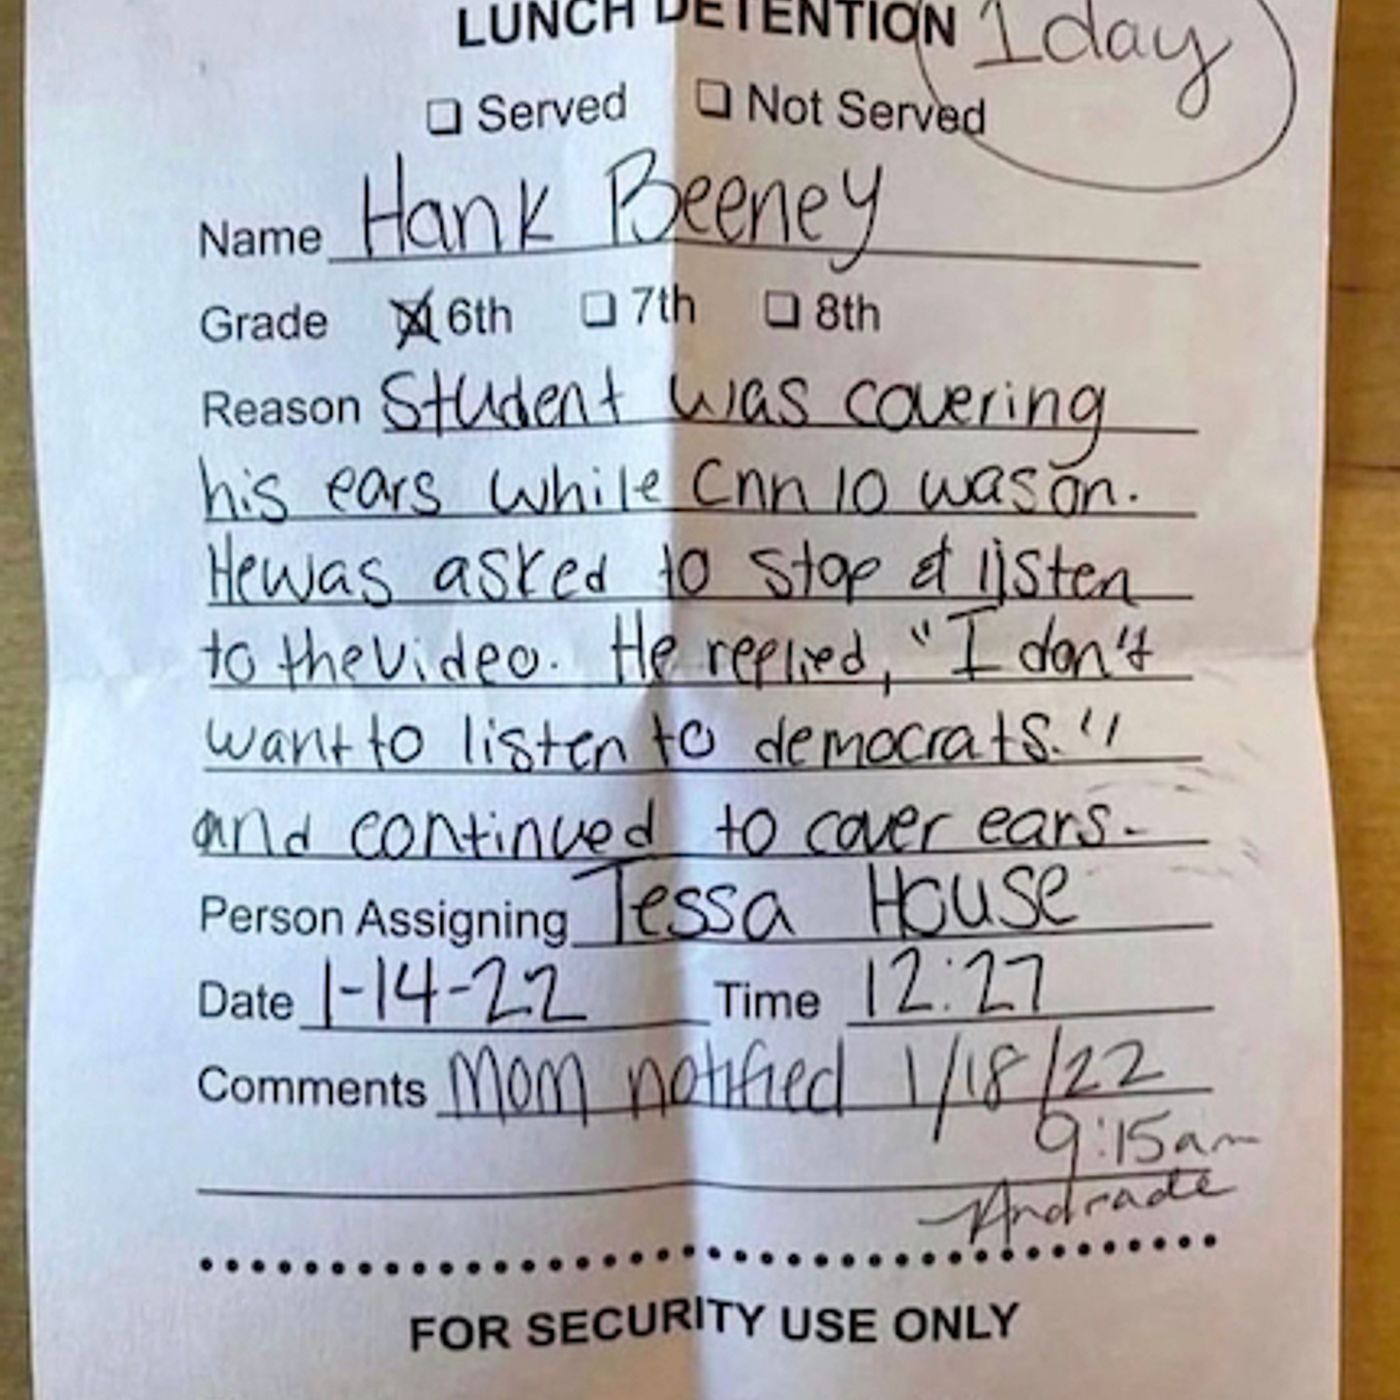 LUNCH DETENTION 1day
❏ Served ❏ Not Served
Name Hank Beeney
Grade ☒ 6th ❏ 7th ❏ 8th
Reason Student was covering
his ears while Cnn 10 was on.
He was asked to stop & listen
to the video. He replied, "I don't
want to listen to democrats."
and continued to cover ears.
Person Assigning Tessa House
Date 1-14-22 Time 12:27
Comments Mom notified 1/18/22
9:15am
Andrade
FOR SECURITY USE ONLY